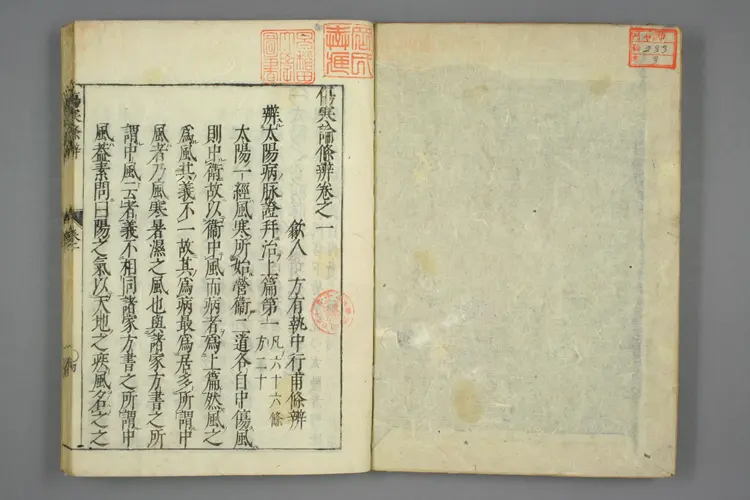 傷寒論條辨卷之一
歙人 方有執中行甫條辨
辨太陽病脉證并治上篇第一 凡六十六條
方二十
太陽一經風寒所始營衞二道各自中傷風
則中衞故以衞中風而病者爲上篇然風之
爲風其義不一故其爲病最爲居多所謂中
風者乃風寒暑濕之風也與諸家方書之所
謂中風云者義不相同諸家方書之所謂中
風蓋素問曰陽之氣以天地之疾風名之之
傷寒條辨
卷一